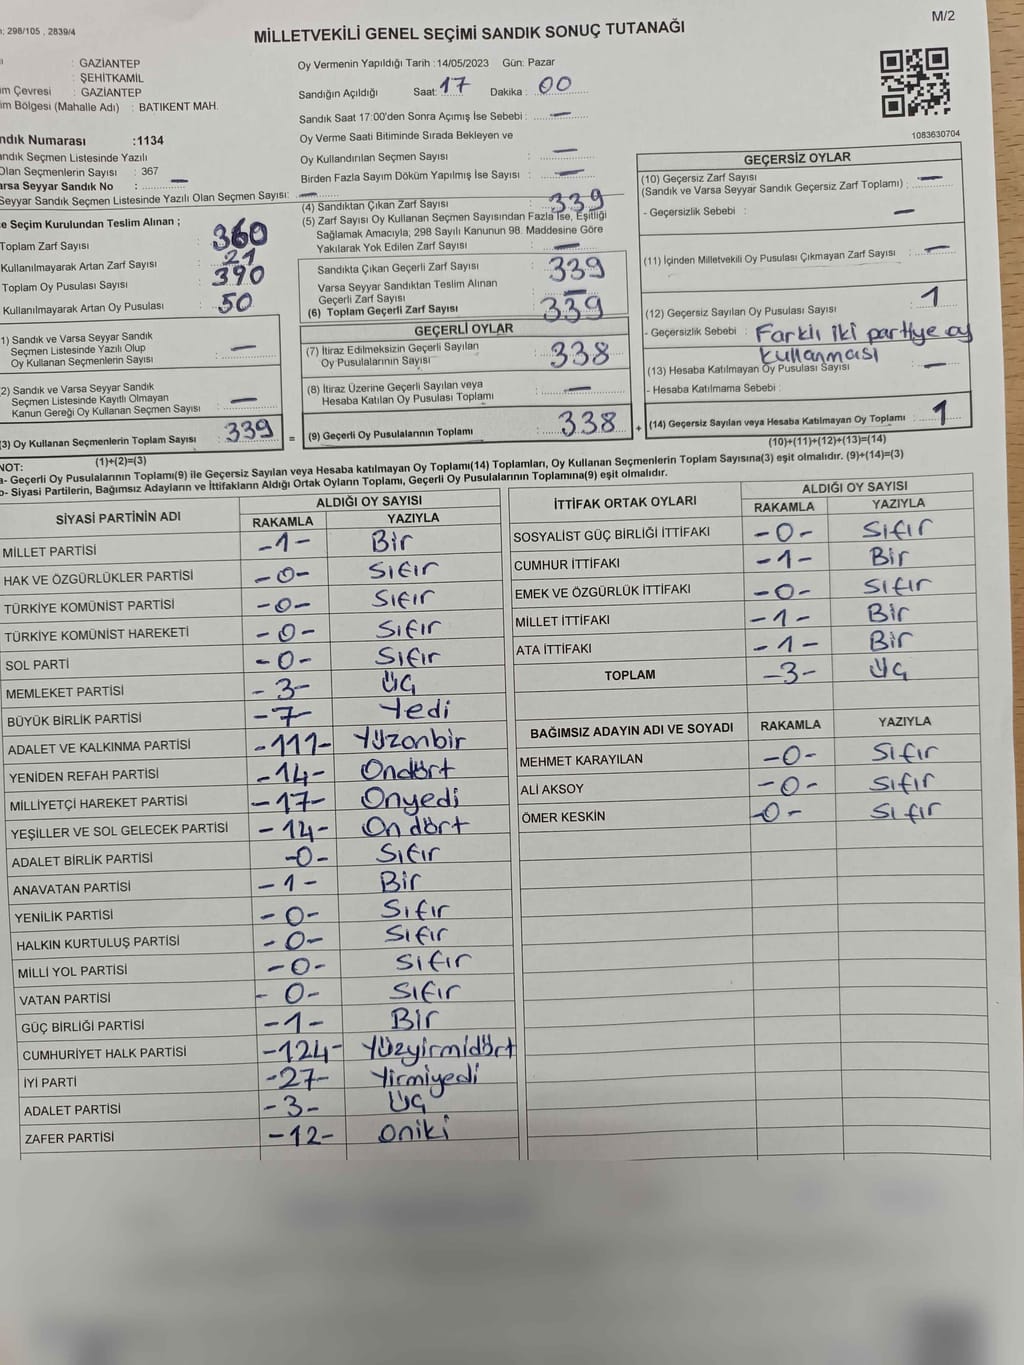 298/105 , 2839/4
M/2
MİLLETVEKİLİ GENEL SEÇİMİ SANDIK SONUÇ TUTANAĞI
: GAZİANTEP
: ŞEHİTKAMİL
Çevresi : GAZİANTEP
Bölgesi (Mahalle Adı) : BATIKENT MAH.
Numarası :1134
Seçmen Listesinde Yazılı
Olan Seçmenlerin Sayısı : 367
Seyyar Sandık No : —
Seyyar Sandık Seçmen Listesinde Yazılı Olan Seçmen Sayısı: —
Oy Vermenin Yapıldığı Tarih :14/05/2023 Gün: Pazar
Sandığın Açıldığı Saat: 17 Dakika : 00
Sandık Saat 17:00'den Sonra Açımış İse Sebebi : —
Oy Verme Saati Bitiminde Sırada Bekleyen ve
Oy Kullandırılan Seçmen Sayısı : —
Birden Fazla Sayım Döküm Yapılmış İse Sayısı : —
1083630704
Seçim Kurulundan Teslim Alınan ;
Toplam Zarf Sayısı : 360
Kullanılmayarak Artan Zarf Sayısı : 21
Toplam Oy Pusulası Sayısı : 390
Kullanılmayarak Artan Oy Pusulası : 50
1) Sandık ve Varsa Seyyar Sandık
Seçmen Listesinde Yazılı Olup
Oy Kullanan Seçmenlerin Sayısı : —
2) Sandık ve Varsa Seyyar Sandık
Seçmen Listesinde Kayıtlı Olmayan
Kanun Gereği Oy Kullanan Seçmen Sayısı : —
(3) Oy Kullanan Seçmenlerin Toplam Sayısı : 339 =
(1)+(2)=(3)
(4) Sandıktan Çıkan Zarf Sayısı : 339
(5) Zarf Sayısı Oy Kullanan Seçmen Sayısından Fazla İse, Eşitliği
Sağlamak Amacıyla; 298 Sayılı Kanunun 98. Maddesine Göre
Yakılarak Yok Edilen Zarf Sayısı : —
Sandıkta Çıkan Geçerli Zarf Sayısı : 339
Varsa Seyyar Sandıktan Teslim Alınan
Geçerli Zarf Sayısı : —
(6) Toplam Geçerli Zarf Sayısı : 339
GEÇERLİ OYLAR
(7) İtiraz Edilmeksizin Geçerli Sayılan
Oy Pusulalarının Sayısı : 338
(8) İtiraz Üzerine Geçerli Sayılan veya
Hesaba Katılan Oy Pusulası Toplamı : —
(9) Geçerli Oy Pusulalarının Toplamı : 338 +
GEÇERSİZ OYLAR
(10) Geçersiz Zarf Sayısı
(Sandık ve Varsa Seyyar Sandık Geçersiz Zarf Toplamı) : —
- Geçersizlik Sebebi : —
(11) İçinden Milletvekili Oy Pusulası Çıkmayan Zarf Sayısı : —
(12) Geçersiz Sayılan Oy Pusulası Sayısı : 1
- Geçersizlik Sebebi : Farklı iki partiye oy
kullanması
(13) Hesaba Katılmayan Oy Pusulası Sayısı : —
- Hesaba Katılmama Sebebi :
(14) Geçersiz Sayılan veya Hesaba Katılmayan Oy Toplamı : 1
(10)+(11)+(12)+(13)=(14)
NOT:
a- Geçerli Oy Pusulalarının Toplamı(9) ile Geçersiz Sayılan veya Hesaba katılmayan Oy Toplamı(14) Toplamları, Oy Kullanan Seçmenlerin Toplam Sayısına(3) eşit olmalıdır. (9)+(14)=(3)
b- Siyasi Partilerin, Bağımsız Adayların ve İttifakların Aldığı Ortak Oyların Toplamı, Geçerli Oy Pusulalarının Toplamına(9) eşit olmalıdır.
SİYASİ PARTİNİN ADI ALDIĞI OY SAYISI
RAKAMLA YAZIYLA
MİLLET PARTİSİ -1- Bir
HAK VE ÖZGÜRLÜKLER PARTİSİ -0- Sıfır
TÜRKİYE KOMÜNİST PARTİSİ -0- Sıfır
TÜRKİYE KOMÜNİST HAREKETİ -0- Sıfır
SOL PARTİ -0- Sıfır
MEMLEKET PARTİSİ -3- Üç
BÜYÜK BİRLİK PARTİSİ -7- Yedi
ADALET VE KALKINMA PARTİSİ -111- Yüzonbir
YENİDEN REFAH PARTİSİ -14- Ondört
MİLLİYETÇİ HAREKET PARTİSİ -17- Onyedi
YEŞİLLER VE SOL GELECEK PARTİSİ -14- On dört
ADALET BİRLİK PARTİSİ -0- Sıfır
ANAVATAN PARTİSİ -1- Bir
YENİLİK PARTİSİ -0- Sıfır
HALKIN KURTULUŞ PARTİSİ -0- Sıfır
MİLLİ YOL PARTİSİ -0- Sıfır
VATAN PARTİSİ -0- Sıfır
GÜÇ BİRLİĞİ PARTİSİ -1- Bir
CUMHURİYET HALK PARTİSİ -124- Yüzyirmidört
İYİ PARTİ -27- Yirmiyedi
ADALET PARTİSİ -3- Üç
ZAFER PARTİSİ -12- Oniki
İTTİFAK ORTAK OYLARI ALDIĞI OY SAYISI
RAKAMLA YAZIYLA
SOSYALİST GÜÇ BİRLİĞİ İTTİFAKI -0- Sıfır
CUMHUR İTTİFAKI -1- Bir
EMEK VE ÖZGÜRLÜK İTTİFAKI -0- Sıfır
MİLLET İTTİFAKI -1- Bir
ATA İTTİFAKI -1- Bir
TOPLAM -3- Üç
BAĞIMSIZ ADAYIN ADI VE SOYADI RAKAMLA YAZIYLA
MEHMET KARAYILAN -0- Sıfır
ALİ AKSOY -0- Sıfır
ÖMER KESKİN -0- Sıfır